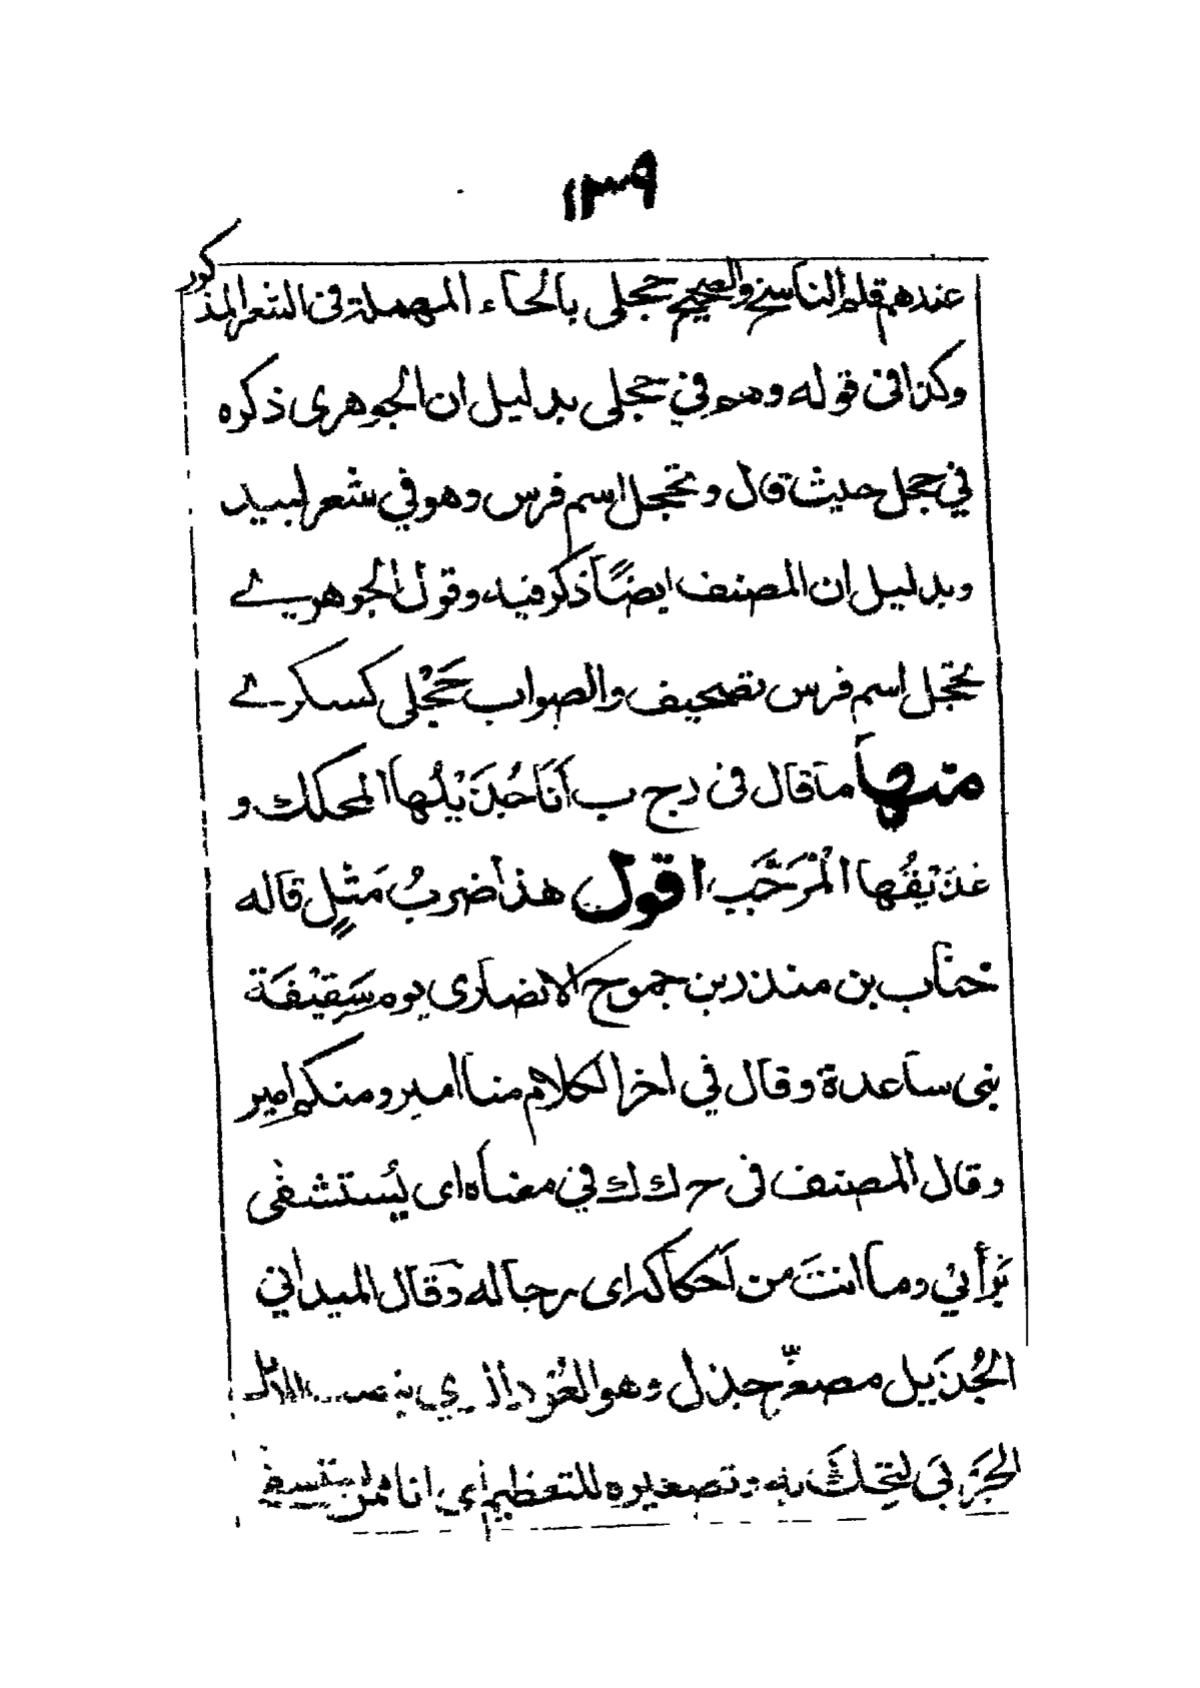 ١٣٩
عندهم قلم الناسخ والصحيح حجلى بالحاء المهملة فى الشعر المذكور
وكذا فى قوله وهم في حجلى بدليل ان الجوهرى ذكره
في حجل حيث قال وتحجل اسم فرس وهو في شعر لبيد
وبدليل ان المصنف ايضًا ذكر فيه وقول الجوهرى
تحجل اسم فرس تصحيف والصواب حَجْلى كسكرى
منها ما قال فى رج ب أنَا حُذَيْلُها المحكك و
عذَيْقُها الْمُرَجَّب اقول هذا ضربُ مَثلٍ قاله
حباب بن منذر بن جموح الانصارى يوم سَقيْفَة
بنى ساعدة وقال في اخر الكلام منا امير ومنكم امير
وقال المصنف فى ح ك ك في معناه اى يُستشفى
بَرأيىْ وما انتَ من اَحكاكه اى رجاله وقال الميداني
الجُذَيل مصغّر جذل وهو العُوْد الذي ينصب
الجَرْبى لتحتكّ به وتصغيره للتعظيم اى انا ممن يستشفى